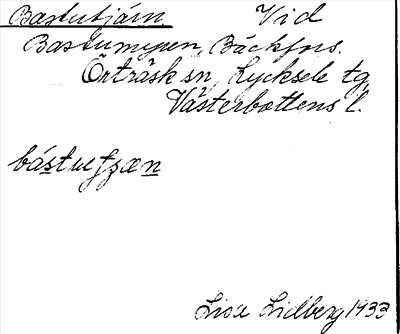 Bastutjärn. Vid
Bastumyren, Bäckfors.
Örträsk sn, Lycksele tg,
Västerbottens l.
bástutjæn
Lisa Lidberg 1933